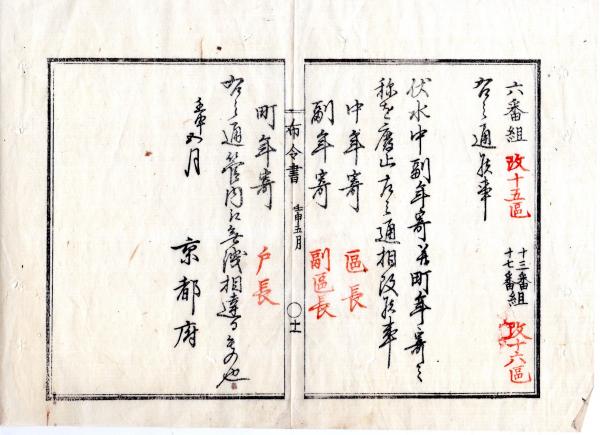 六番組 改十五區
十三番組
十七番組 改十六區
右之通候事
伏水中副年寄並町年寄之
称を廃止右之通相改候事
中年寄 區長
副年寄 副區長
布令書 壬申五月 〇十一
町年寄 戸長
右之通管内江無洩相達るもの也
壬申五月
京都府